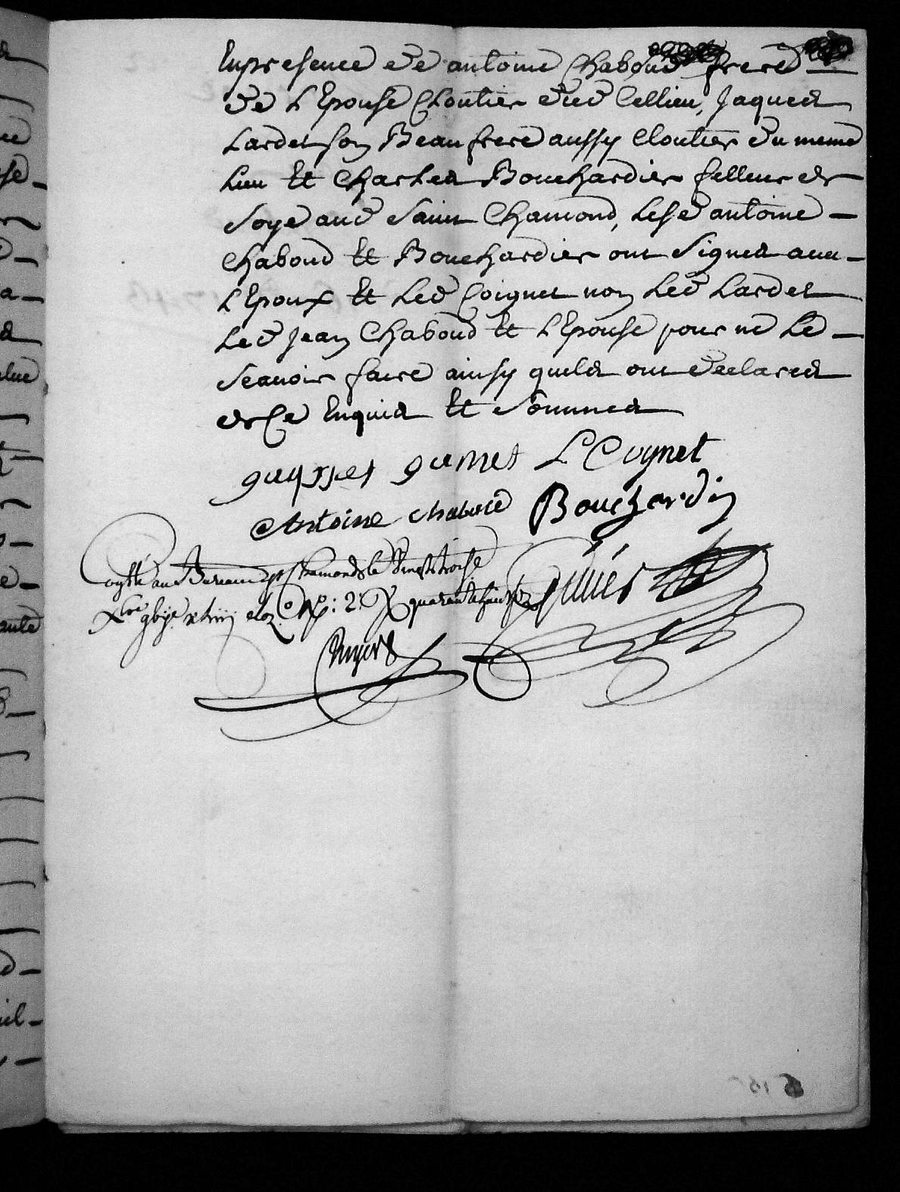 En presence de antoine Chaboud frere
de L'Epouse Cloutier dud Cellieu, Jaques
Lardet son Beaufrere aussy Cloutier du meme
Lieu Et Charles Bouchardier felleur de
soye aud Saint Chamond, Lesd antoine
Chaboud Et Bouchardier ont signes avec
L'Epoux Et Led Coignet non Led Lardet
Led Jean Chaboud Et L'Epouse pour ne Le
scavoir faire ainsy quils ont declares
de Ce Enquis Et Sommes
L Coynet
Antoine chaboud Bouchardie
au Bureau de St Chamond le Vingt troise